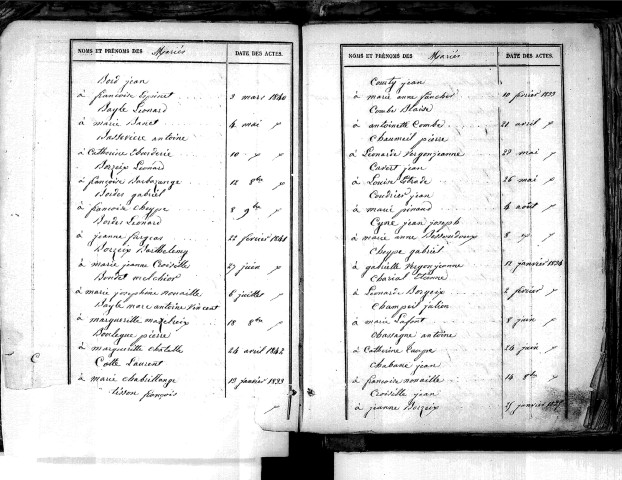 NOMS ET PRÉNOMS DES Mariés DATE DES ACTES.
Bord jean
à françoise Espinet 3 mars 1840
Bayle Léonard
à marie Banet 4 mai "
Bassevière antoine
à Catherine 10 " "
Bozzeix Léonard
à françoise Barbazange 12 8bre "
Bordes gabriel
à françoise Cheype 8 9bre "
Bordes Léonard
à jeanne fargeas 22 février 1841
Bozzeix Barthelemy
à marie jeanne Croiselle 27 juin "
Boudet melchior
à marie josephine nouaille 6 juillet "
Bayle marc antoine Vincent
à marguerite 18 8bre "
Boulegue pierre
à marguerite 24 avril 1842
Colle Laurent
à marie Chabrillange 13 janvier 1833
françois "
NOMS ET PRÉNOMS DES Mariés DATE DES ACTES.
Courty jean
à marie anne 10 février 1833
Combe Blaise
à antoinette Combe 21 avril "
Chaumeil pierre
à Léonarde Vergonjeanne 27 mai "
Cavert jean
à Louise Estrade 26 mai "
Coudrier jean
à marie pinaud 4 août "
Cyrie jean joseph
à marie anne 8 " "
Cheype gabriel
à gabrielle Vergonjeanne 12 janvier 1834
Chariat Etienne
à Léonarde Bozzeix 2 février "
Champeil julien
à marie Lafont 8 juin "
Chassagne antoine
à Catherine 24 juin "
Chabane jean
à françoise nouaille 14 8bre "
Croiselle jean
à jeanne Bozzeix 25 janvier